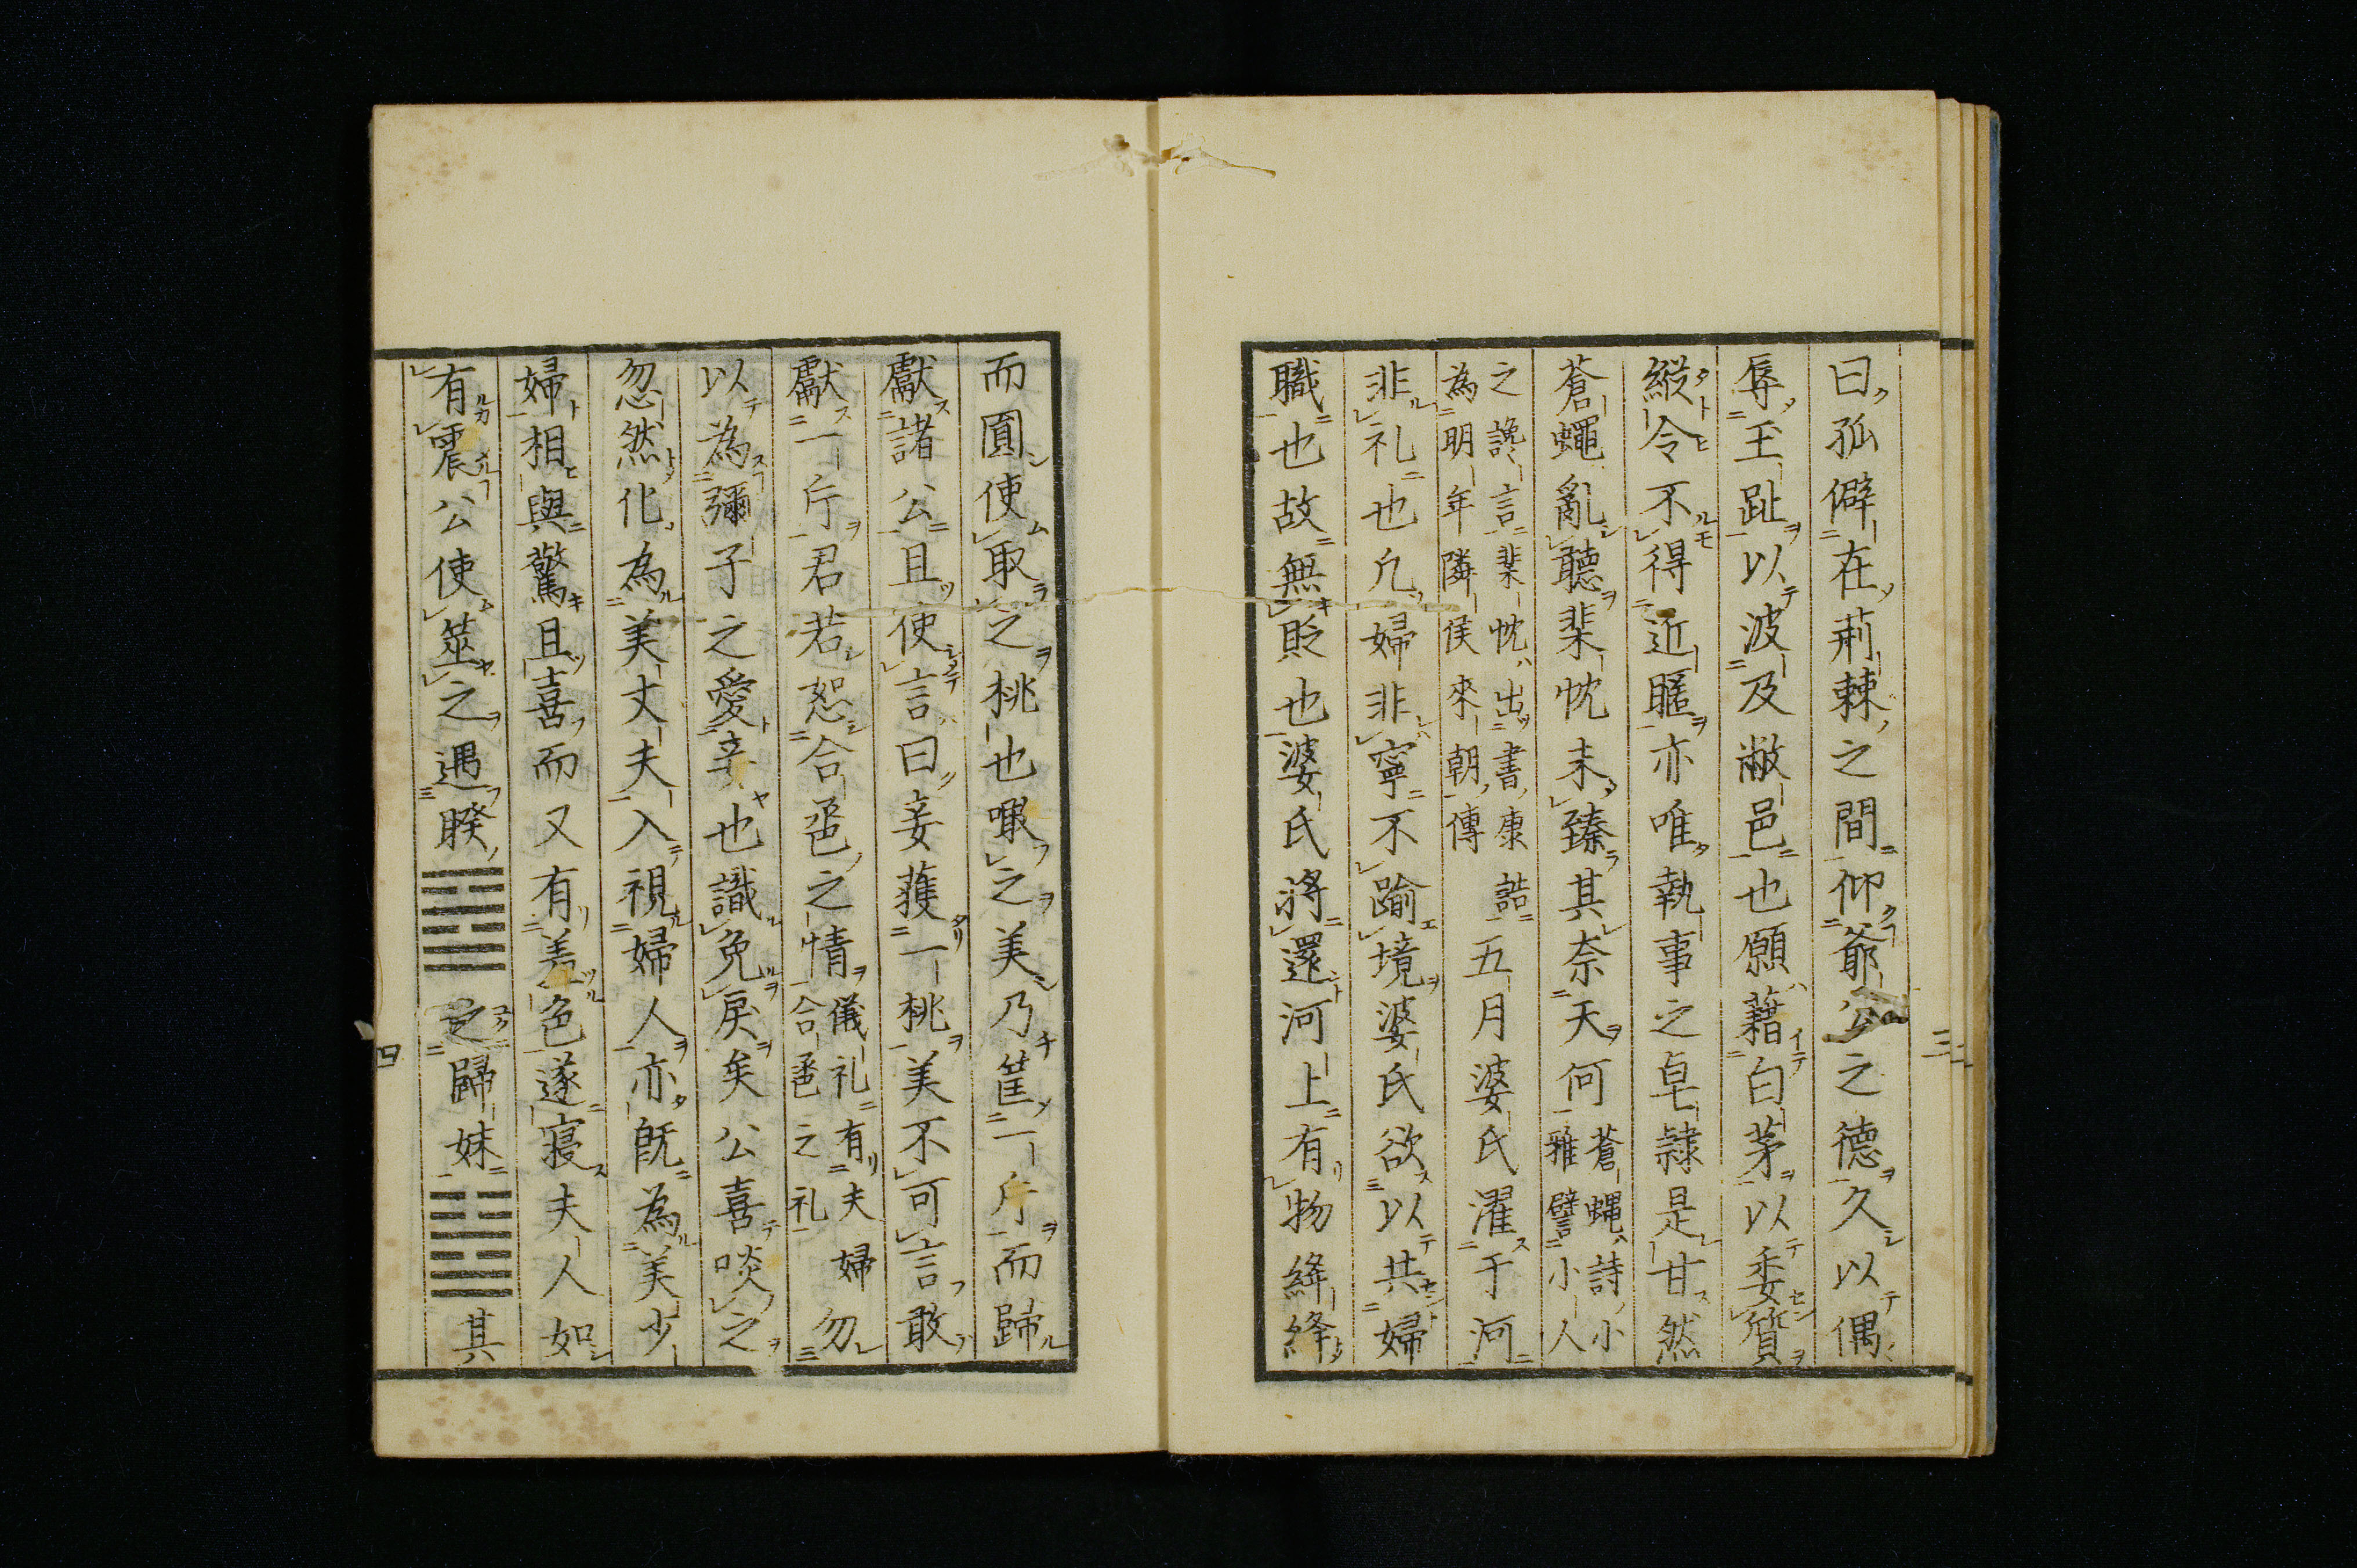 曰孤僻在荊棘之間仰爺公之德久以偶
辱玉趾以波及敝邑也願藉白茅以委質
縱令不得近暱亦唯執事之皁隷是甘然
蒼蠅亂聽棐忱未臻其奈天何蒼蝿詩小雅譬小人
之讒言棐忱出書康誥為明年隣侯來朝傳五月婆氏濯于河
非礼也凢婦非寧不踰境婆氏欲以共婦
職也故無貶也婆氏將還河上有物絳絳
三
而圓使取之桃也嘬之美乃筐一斤而歸
獻諸公且使言曰妾獲一桃美不可言敢
獻一斤君若恕合巹之情儀礼有夫婦合巹之礼勿
以為彌子之愛幸也識免戻矣公喜啖之
忽然化為美丈夫入視婦人亦既為美少
婦相與驚且喜而又有羞色遂寝夫人如
有震公使筮之遇睽䷥之歸妹䷵其
四